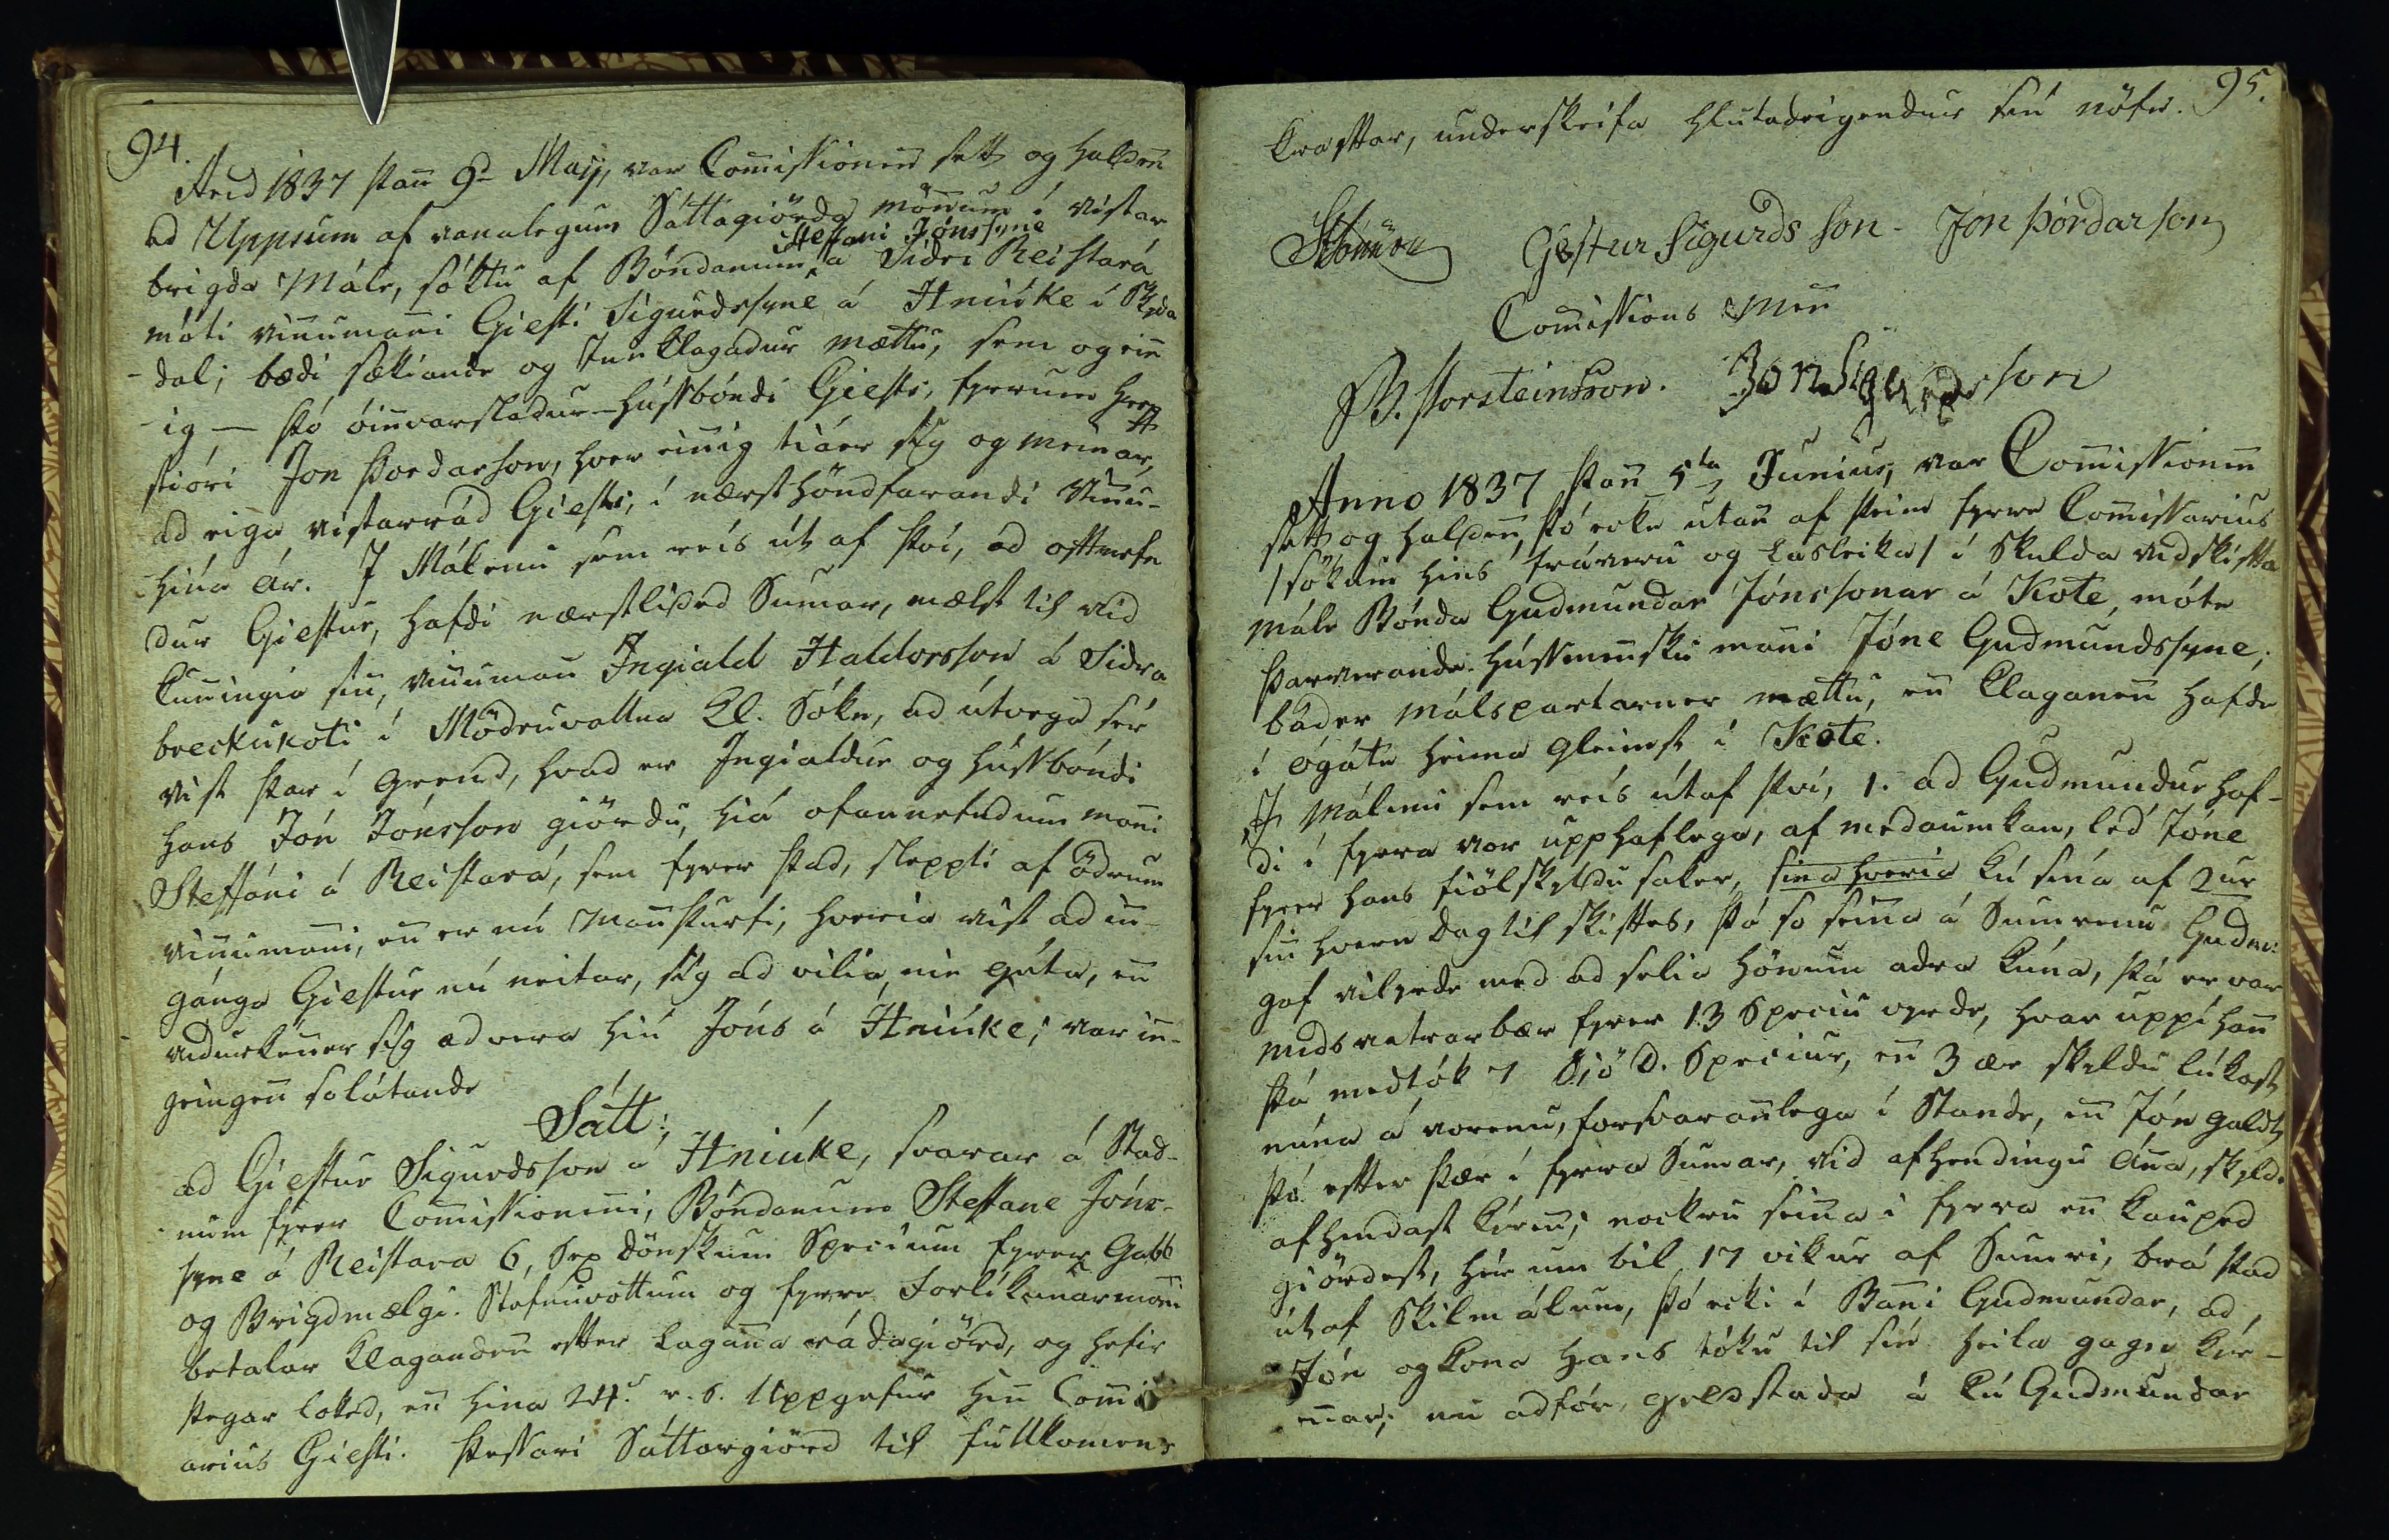 94.
Árid 1837 þan̄ 9d Maji, var Com̄issionen sett og halden̄
ad Uppsum af vanalegum Sáttagiörda mön̄um í vistar
brigda Måle, sóktu af Bóndanum Steffani Jónssyne á Sidri Reistará
móti vin̄uman̄i Giesti Sigurdssyne á Hniúke í Skída
-dal; bædi sækiande og In̄klagadur mættu, sem og ein̄
-ig – þó óin̄varsladur – húsbóndi Giests, fyrrum hrepp
stióri Jon Þordarson, hver ein̄ig tiáer sig og meinar,
ad eiga vistarrád Giests, í nærst höndfarandi vin̄u-
hiúa ár. I Málenu sem reis út af því, ad oftnefn
dur Giestur, hafdi nærstlided Sumar, mælst til vid
Kun̄ingia sin̄, vin̄uman̄ Ingiald Haldorsson á Sidra
breckukoti í Mödruvallna Kl. Sókn, ad útvega sér
vist þar í grend, hvad er Ingialdur og húsbóndi
hans Jón Jónsson giördu, hiá ofannefndum man̄i
Steffáni á Reistará, sem fyrer þad, sleppti af ödrum
vin̄uman̄i, en̄ er nú Man̄þurfi, hveria vist ad in̄-
gánga Giestur nú neitar, sig ad vilia, nie géta, en̄
vidurken̄er sig ad vera hiú Jóns á Hniúke; var in̄-
geingen̄ solátande
Sátt:,
ad Giestur Sigurdsson á Hniúke, svarar á Stad-
num fyrer Com̄issionen̄i, Bóndanum Steffane Jóns-
syne á Reistara 6, Sex dönskum Specium fyrer Gabb
og Brigdmælgi. Stefnuvottum og fyrre Forlíkunarman̄i
betalar Klaganden̄ efter Lagan̄a rádagiörd, og hefir
þegar loked, en̄ hina 24s. r. S. Uppgefur hin̄ Com̄is
arius Giesti. Þessari Sáttargiörd til fullkomens
95.
Kraftar, underskrifa hlutadeigendur sín nöfn.
Gestur Sigurds son - Jón Þórdarson
Com̄issions Men̄
B. Þorsteinsson. Jon Sigurdsson
Anno 1837 þan̄ 5ta Junius, var Com̄issionen̄
sett og halden̄, þó ecke utan̄ af þeim fyrre Com̄issarius
/sökum hins fráveru og Lasleika/ í Skulda vidskifta
mále Bónda Gudmundar Jónssonar á Kote, móte
þarverande húsmen̄sku man̄i Jóne Gudmundssyne;
báder málspartarner mættu, en̄ Klaganen̄ hafde
í ógáte heima gleimst í Kote.
I Málinu sem reis útaf því, 1. ad Gudmundur haf-
di í fyrra vor upphaflega, af medaumkan, led Jóne
fyrer hans fiölskyldu saker, sina hveria kú sína af 2ur
sin̄ hvern Dag til skiftes, þá so sein̄a á Sumrenu Gudm:
gaf vilyrde med ad selia hönum adra kúna, þá er var
midsvetrarbær fyrer 13 Speciu vyrde, hvar uppí han̄
þá medtók 7 Siö D. Speciur, en̄ 3 ær skyldu lúkast
núna á vorenu, forsvaran̄lega í Stande, en̄ Jón galdt
þó efter þær í fyrra Sumar, vid afhendingu án̄a, skyld.
afhendast kúen̄; nockru sein̄a í fyrra en̄ kauped
giördest, hér um bil 17 vikur af Sumri, brá þad
útaf Skilmálum, þó ecki í Ban̄i Gudmundar, ad
Jón og kona hans tóku til sín heila gagn kúr-
en̄ar; nu adfór, geldstada á kú Gudmundar